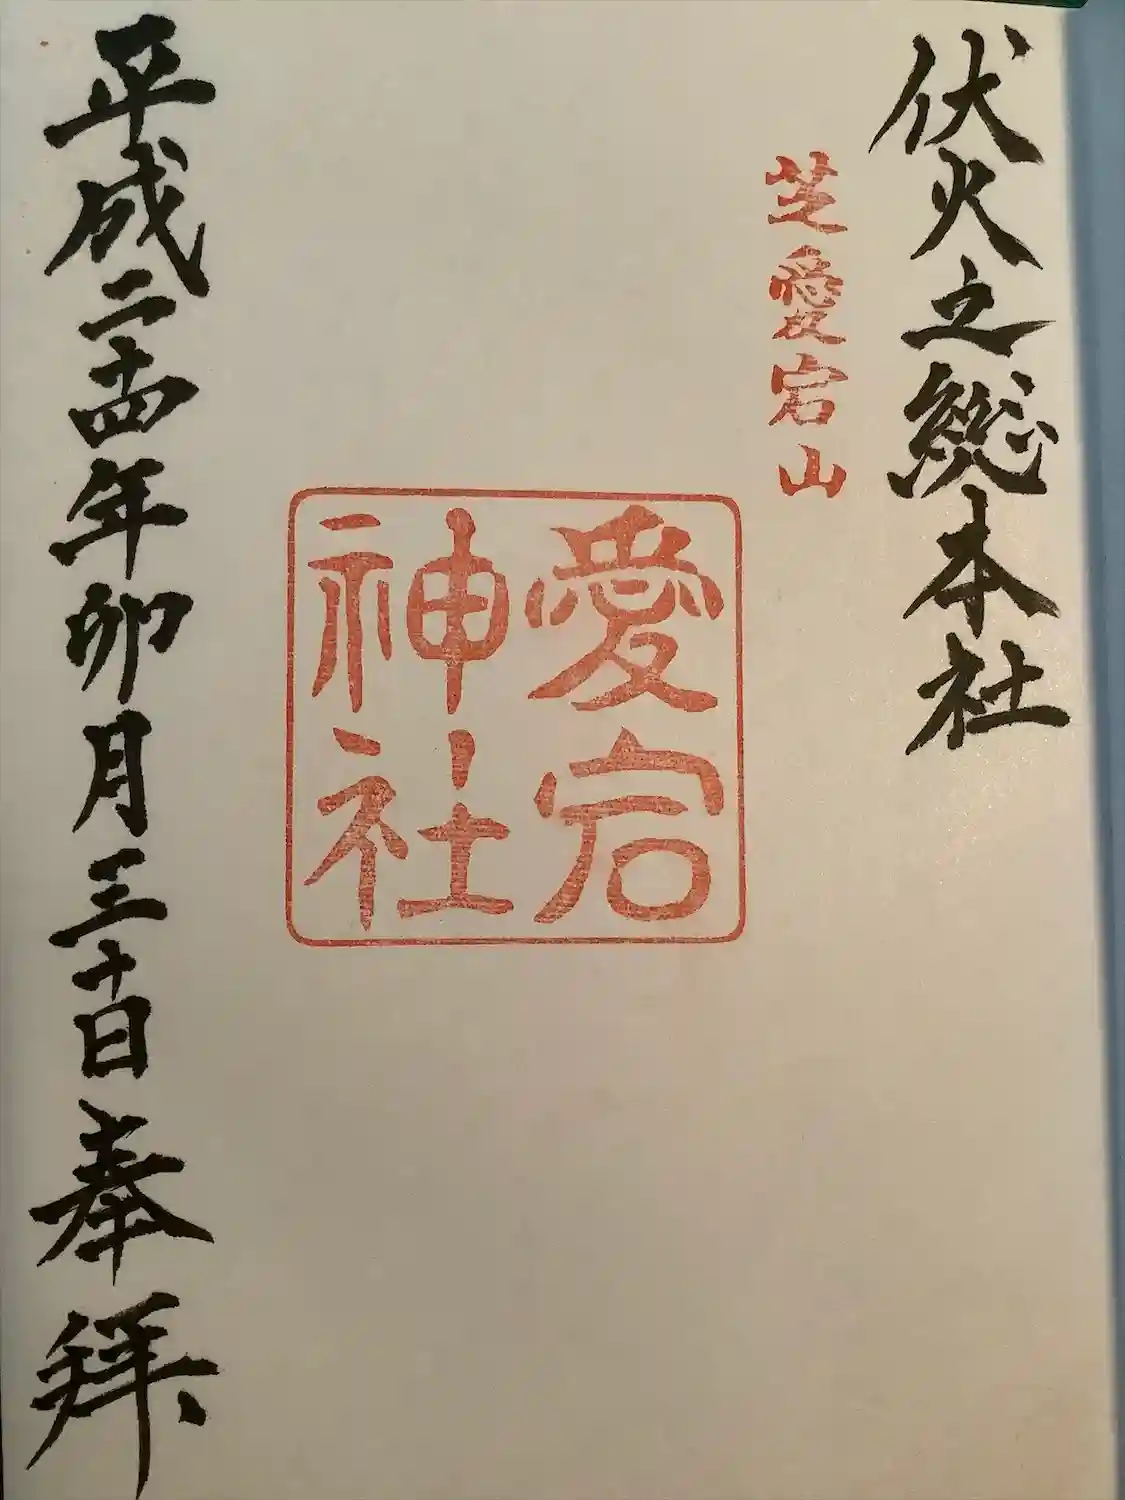 伏火之総本社
芝愛宕山
愛宕
神社
平成二十四年卯月三十日奉拝